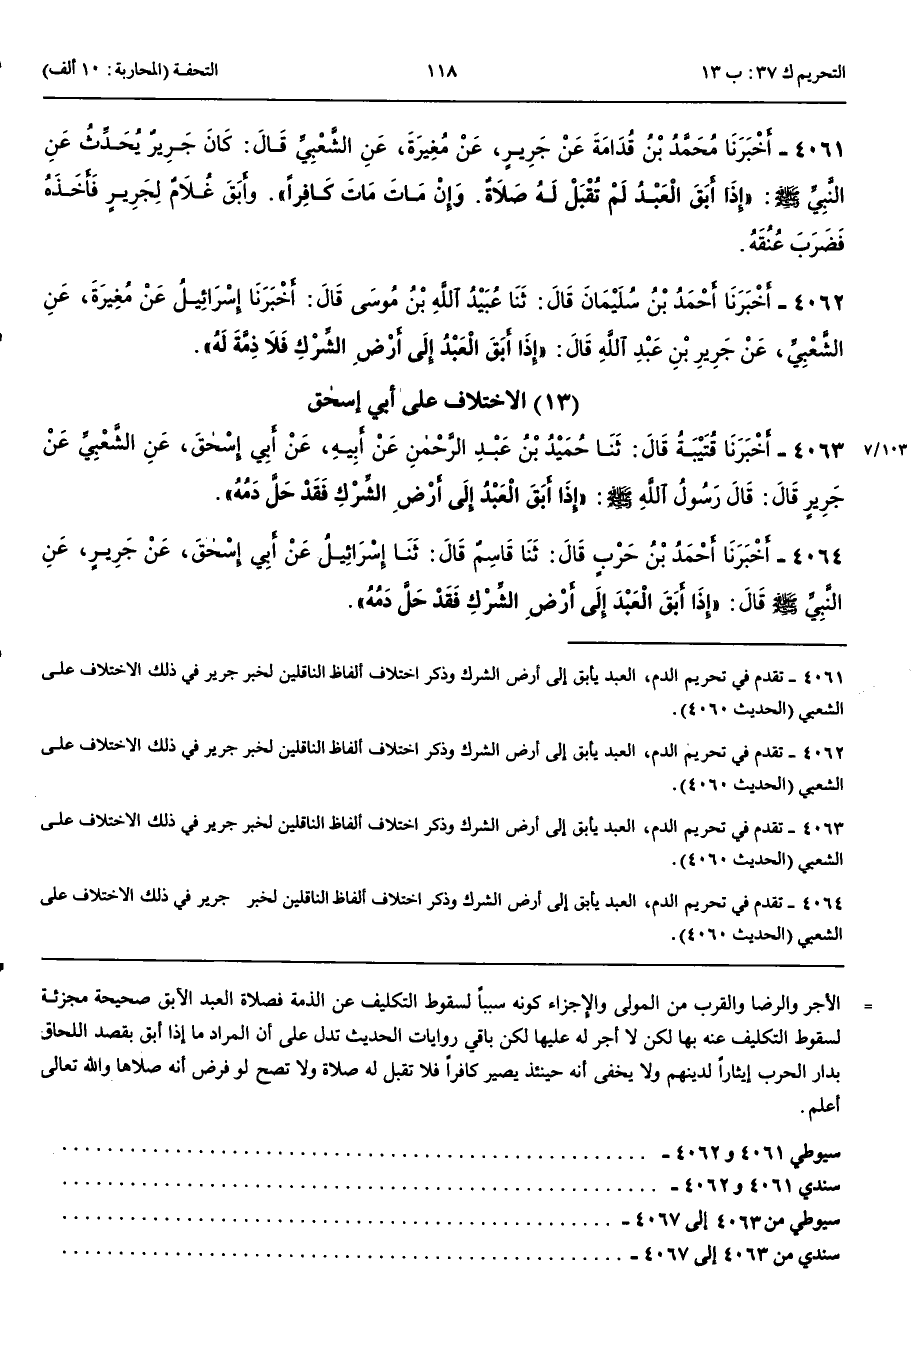 التحريم ك ٣٧: ب ١٣ ١١٨ التحفة (المحاربة: ١٠ ألف)
٤٠٦١ - أَخْبَرَنَا مُحَمَّدُ بْنُ قُدَامَةَ عَنْ جَرِيرٍ، عَنْ مُغِيرَةَ، عَنِ الشَّعْبِيِّ قَالَ: كَانَ جَرِيرٌ يُحَدِّثُ عَنِ
النَّبِيِّ ﷺ: «إِذَا أَبَقَ الْعَبْدُ لَمْ تُقْبَلْ لَهُ صَلَاةٌ. وَإِنْ مَاتَ مَاتَ كَافِراً». وأَبَقَ غُلَامٌ لِجَرِيرٍ فَأَخَذَهُ
فَضَرَبَ عُنُقَهُ.
٤٠٦٢ - أَخْبَرَنَا أَحْمَدُ بْنُ سُلَيْمَانَ قَالَ: ثَنَا عُبَيْدُ آللَّهِ بْنُ مُوسَى قَالَ: أَخْبَرَنَا إِسْرَائِيلُ عَنْ مُغِيرَةَ، عَنِ
الشَّعْبِيِّ، عَنْ جَرِيرِ بْنِ عَبْدِ آللَّهِ قَالَ: «إِذَا أَبَقَ الْعَبْدُ إِلَى أَرْضِ الشِّرْكِ فَلَا ذِمَّةَ لَهُ».
(١٣) الاختلاف على أبي إسحٰق
٤٠٦٣ - أَخْبَرَنَا قُتَيْبَةُ قَالَ: ثَنَا حُمَيْدُ بْنُ عَبْدِ الرَّحْمٰنِ عَنْ أَبِيهِ، عَنْ أَبِي إِسْحٰقَ، عَنِ الشَّعْبِيِّ عَنْ ٧/١٠٣
جَرِيرٍ قَالَ: قَالَ رَسُولُ آللَّهِ ﷺ: «إِذَا أَبَقَ الْعَبْدُ إِلَى أَرْضِ الشِّرْكِ فَقَدْ حَلَّ دَمُهُ».
٤٠٦٤ - أَخْبَرَنَا أَحْمَدُ بْنُ حَرْبٍ قَالَ: ثَنَا قَاسِمٌ قَالَ: ثَنَا إِسْرَائِيلُ عَنْ أَبِي إِسْحٰقَ، عَنْ جَرِيرٍ، عَنِ
النَّبِيِّ ﷺ قَالَ: «إِذَا أَبَقَ الْعَبْدَ إِلَى أَرْضِ الشِّرْكِ فَقَدْ حَلَّ دَمُهُ».
٤٠٦١ - تقدم في تحريم الدم، العبد يأبق إلى أرض الشرك وذكر اختلاف ألفاظ الناقلين لخبر جرير في ذلك الاختلاف على
الشعبي (الحديث ٤٠٦٠).
٤٠٦٢ - تقدم في تحريم الدم، العبد يأبق إلى أرض الشرك وذكر اختلاف ألفاظ الناقلين لخبر جرير في ذلك الاختلاف على
الشعبي (الحديث ٤٠٦٠).
٤٠٦٣ - تقدم في تحريم الدم، العبد يأبق إلى أرض الشرك وذكر اختلاف ألفاظ الناقلين لخبر جرير في ذلك الاختلاف على
الشعبي (الحديث ٤٠٦٠).
٤٠٦٤ - تقدم في تحريم الدم، العبد يأبق إلى أرض الشرك وذكر اختلاف ألفاظ الناقلين لخبر جرير في ذلك الاختلاف على
الشعبي (الحديث ٤٠٦٠).
= الأجر والرضا والقرب من المولى والإجزاء كونه سبباً لسقوط التكليف عن الذمة فصلاة العبد الأبق صحيحة مجزئة
لسقوط التكليف عنه بها لكن لا أجر له عليها لكن باقي روايات الحديث تدل على أن المراد ما إذا أبق بقصد اللحاق
بدار الحرب إيثاراً لدينهم ولا يخفى أنه حينئذ يصير كافراً فلا تقبل له صلاة ولا تصح لو فرض أنه صلاها والله تعالى
أعلم.
سيوطي ٤٠٦١ و ٤٠٦٢ - ..................................................
سندي ٤٠٦١ و ٤٠٦٢ - ..................................................
سيوطي من ٤٠٦٣ إلى ٤٠٦٧ - ..................................................
سندي من ٤٠٦٣ إلى ٤٠٦٧ - ..................................................